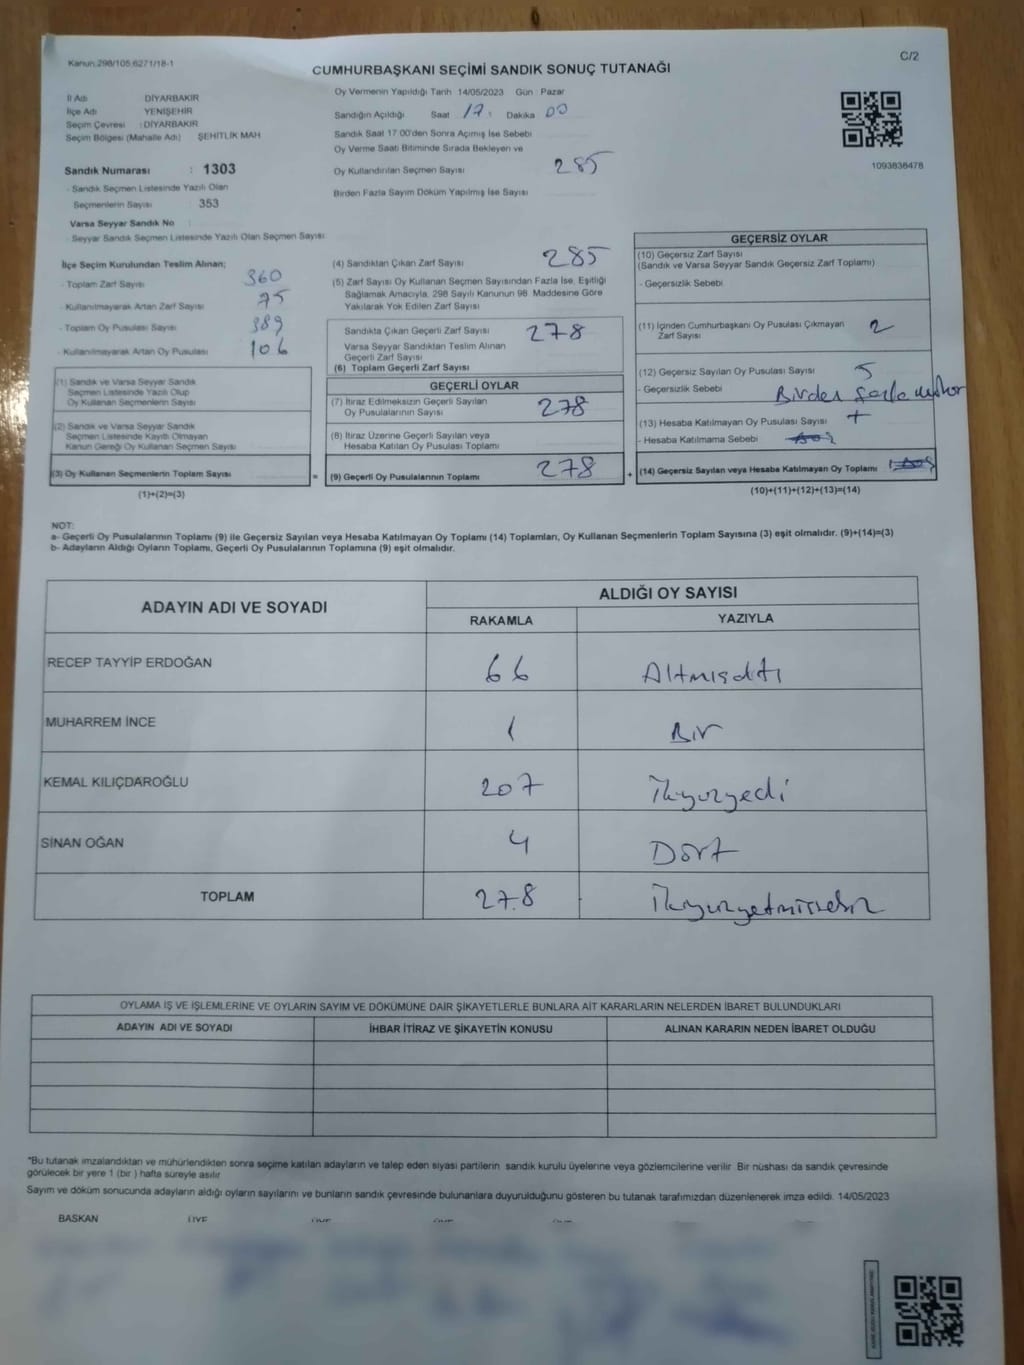 Kanun:298/105,6271/18-1
C/2
CUMHURBAŞKANI SEÇİMİ SANDIK SONUÇ TUTANAĞI
İl Adı DİYARBAKIR
İlçe Adı YENİŞEHİR
Seçim Çevresi : DİYARBAKIR
Seçim Bölgesi (Mahalle Adı) ŞEHİTLİK MAH
Sandık Numarası : 1303
- Sandık Seçmen Listesinde Yazılı Olan
Seçmenlerin Sayısı : 353
Varsa Seyyar Sandık No :
- Seyyar Sandık Seçmen Listesinde Yazılı Olan Seçmen Sayısı:
Oy Vermenin Yapıldığı Tarih 14/05/2023 Gün Pazar
Sandığın Açıldığı Saat 17 : Dakika 00
Sandık Saat 17:00'den Sonra Açımış İse Sebebi
Oy Verme Saati Bitiminde Sırada Bekleyen ve
Oy Kullandırılan Seçmen Sayısı 285
Birden Fazla Sayım Döküm Yapılmış İse Sayısı
1093836478
İlçe Seçim Kurulundan Teslim Alınan;
- Toplam Zarf Sayısı 360
- Kullanılmayarak Artan Zarf Sayısı 75
- Toplam Oy Pusulası Sayısı 389
- Kullanılmayarak Artan Oy Pusulası 106
(1) Sandık ve Varsa Seyyar Sandık
Seçmen Listesinde Yazılı Olup
Oy Kullanan Seçmenlerin Sayısı
(2) Sandık ve Varsa Seyyar Sandık
Seçmen Listesinde Kayıtlı Olmayan
Kanun Gereği Oy Kullanan Seçmen Sayısı
(3) Oy Kullanan Seçmenlerin Toplam Sayısı
(1)+(2)=(3)
=
(4) Sandıktan Çıkan Zarf Sayısı 285
(5) Zarf Sayısı Oy Kullanan Seçmen Sayısından Fazla İse, Eşitliği
Sağlamak Amacıyla, 298 Sayılı Kanunun 98. Maddesine Göre
Yakılarak Yok Edilen Zarf Sayısı
Sandıkta Çıkan Geçerli Zarf Sayısı 278
Varsa Seyyar Sandıktan Teslim Alınan
Geçerli Zarf Sayısı
(6) Toplam Geçerli Zarf Sayısı
GEÇERLİ OYLAR
(7) İtiraz Edilmeksizin Geçerli Sayılan
Oy Pusulalarının Sayısı 278
(8) İtiraz Üzerine Geçerli Sayılan veya
Hesaba Katılan Oy Pusulası Toplamı
(9) Geçerli Oy Pusulalarının Toplamı 278
+
GEÇERSİZ OYLAR
(10) Geçersiz Zarf Sayısı
(Sandık ve Varsa Seyyar Sandık Geçersiz Zarf Toplamı)
- Geçersizlik Sebebi
(11) İçinden Cumhurbaşkanı Oy Pusulası Çıkmayan
Zarf Sayısı 2
(12) Geçersiz Sayılan Oy Pusulası Sayısı 5
- Geçersizlik Sebebi Birden fazla mühür
(13) Hesaba Katılmayan Oy Pusulası Sayısı
- Hesaba Katılmama Sebebi
(14) Geçersiz Sayılan veya Hesaba Katılmayan Oy Toplamı
(10)+(11)+(12)+(13)=(14)
NOT:
a- Geçerli Oy Pusulalarının Toplamı (9) ile Geçersiz Sayılan veya Hesaba Katılmayan Oy Toplamı (14) Toplamları, Oy Kullanan Seçmenlerin Toplam Sayısına (3) eşit olmalıdır. (9)+(14)=(3)
b- Adayların Aldığı Oyların Toplamı, Geçerli Oy Pusulalarının Toplamına (9) eşit olmalıdır.
ADAYIN ADI VE SOYADI
ALDIĞI OY SAYISI
RAKAMLA YAZIYLA
RECEP TAYYİP ERDOĞAN 66 Altmışaltı
MUHARREM İNCE 1 Bir
KEMAL KILIÇDAROĞLU 207 İkiyüzyedi
SİNAN OĞAN 4 Dört
TOPLAM 278 İkiyüzyetmişsekiz
OYLAMA İŞ VE İŞLEMLERİNE VE OYLARIN SAYIM VE DÖKÜMÜNE DAİR ŞİKAYETLERLE BUNLARA AİT KARARLARIN NELERDEN İBARET BULUNDUKLARI
ADAYIN ADI VE SOYADI İHBAR İTİRAZ VE ŞİKAYETİN KONUSU ALINAN KARARIN NEDEN İBARET OLDUĞU
*Bu tutanak imzalandıktan ve mühürlendikten sonra seçime katılan adayların ve talep eden siyasi partilerin sandık kurulu üyelerine veya gözlemcilerine verilir Bir nüshası da sandık çevresinde
görülecek bir yere 1 (bir ) hafta süreyle asılır
Sayım ve döküm sonucunda adayların aldığı oyların sayılarını ve bunların sandık çevresinde bulunanlara duyurulduğunu gösteren bu tutanak tarafımızdan düzenlenerek imza edildi. 14/05/2023
BAŞKAN ÜYE ÜYE ÜYE ÜYE